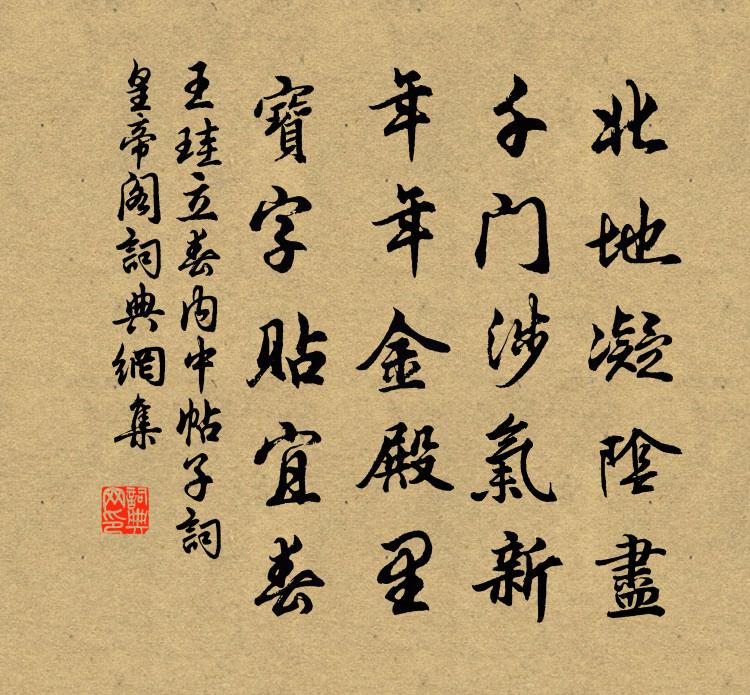 北地凝陰盡
千門涉氣新
年年金殿里
寶字貼宜春
王珪立春内中帖子詞
皇帝阁詞典網集
詞典网印